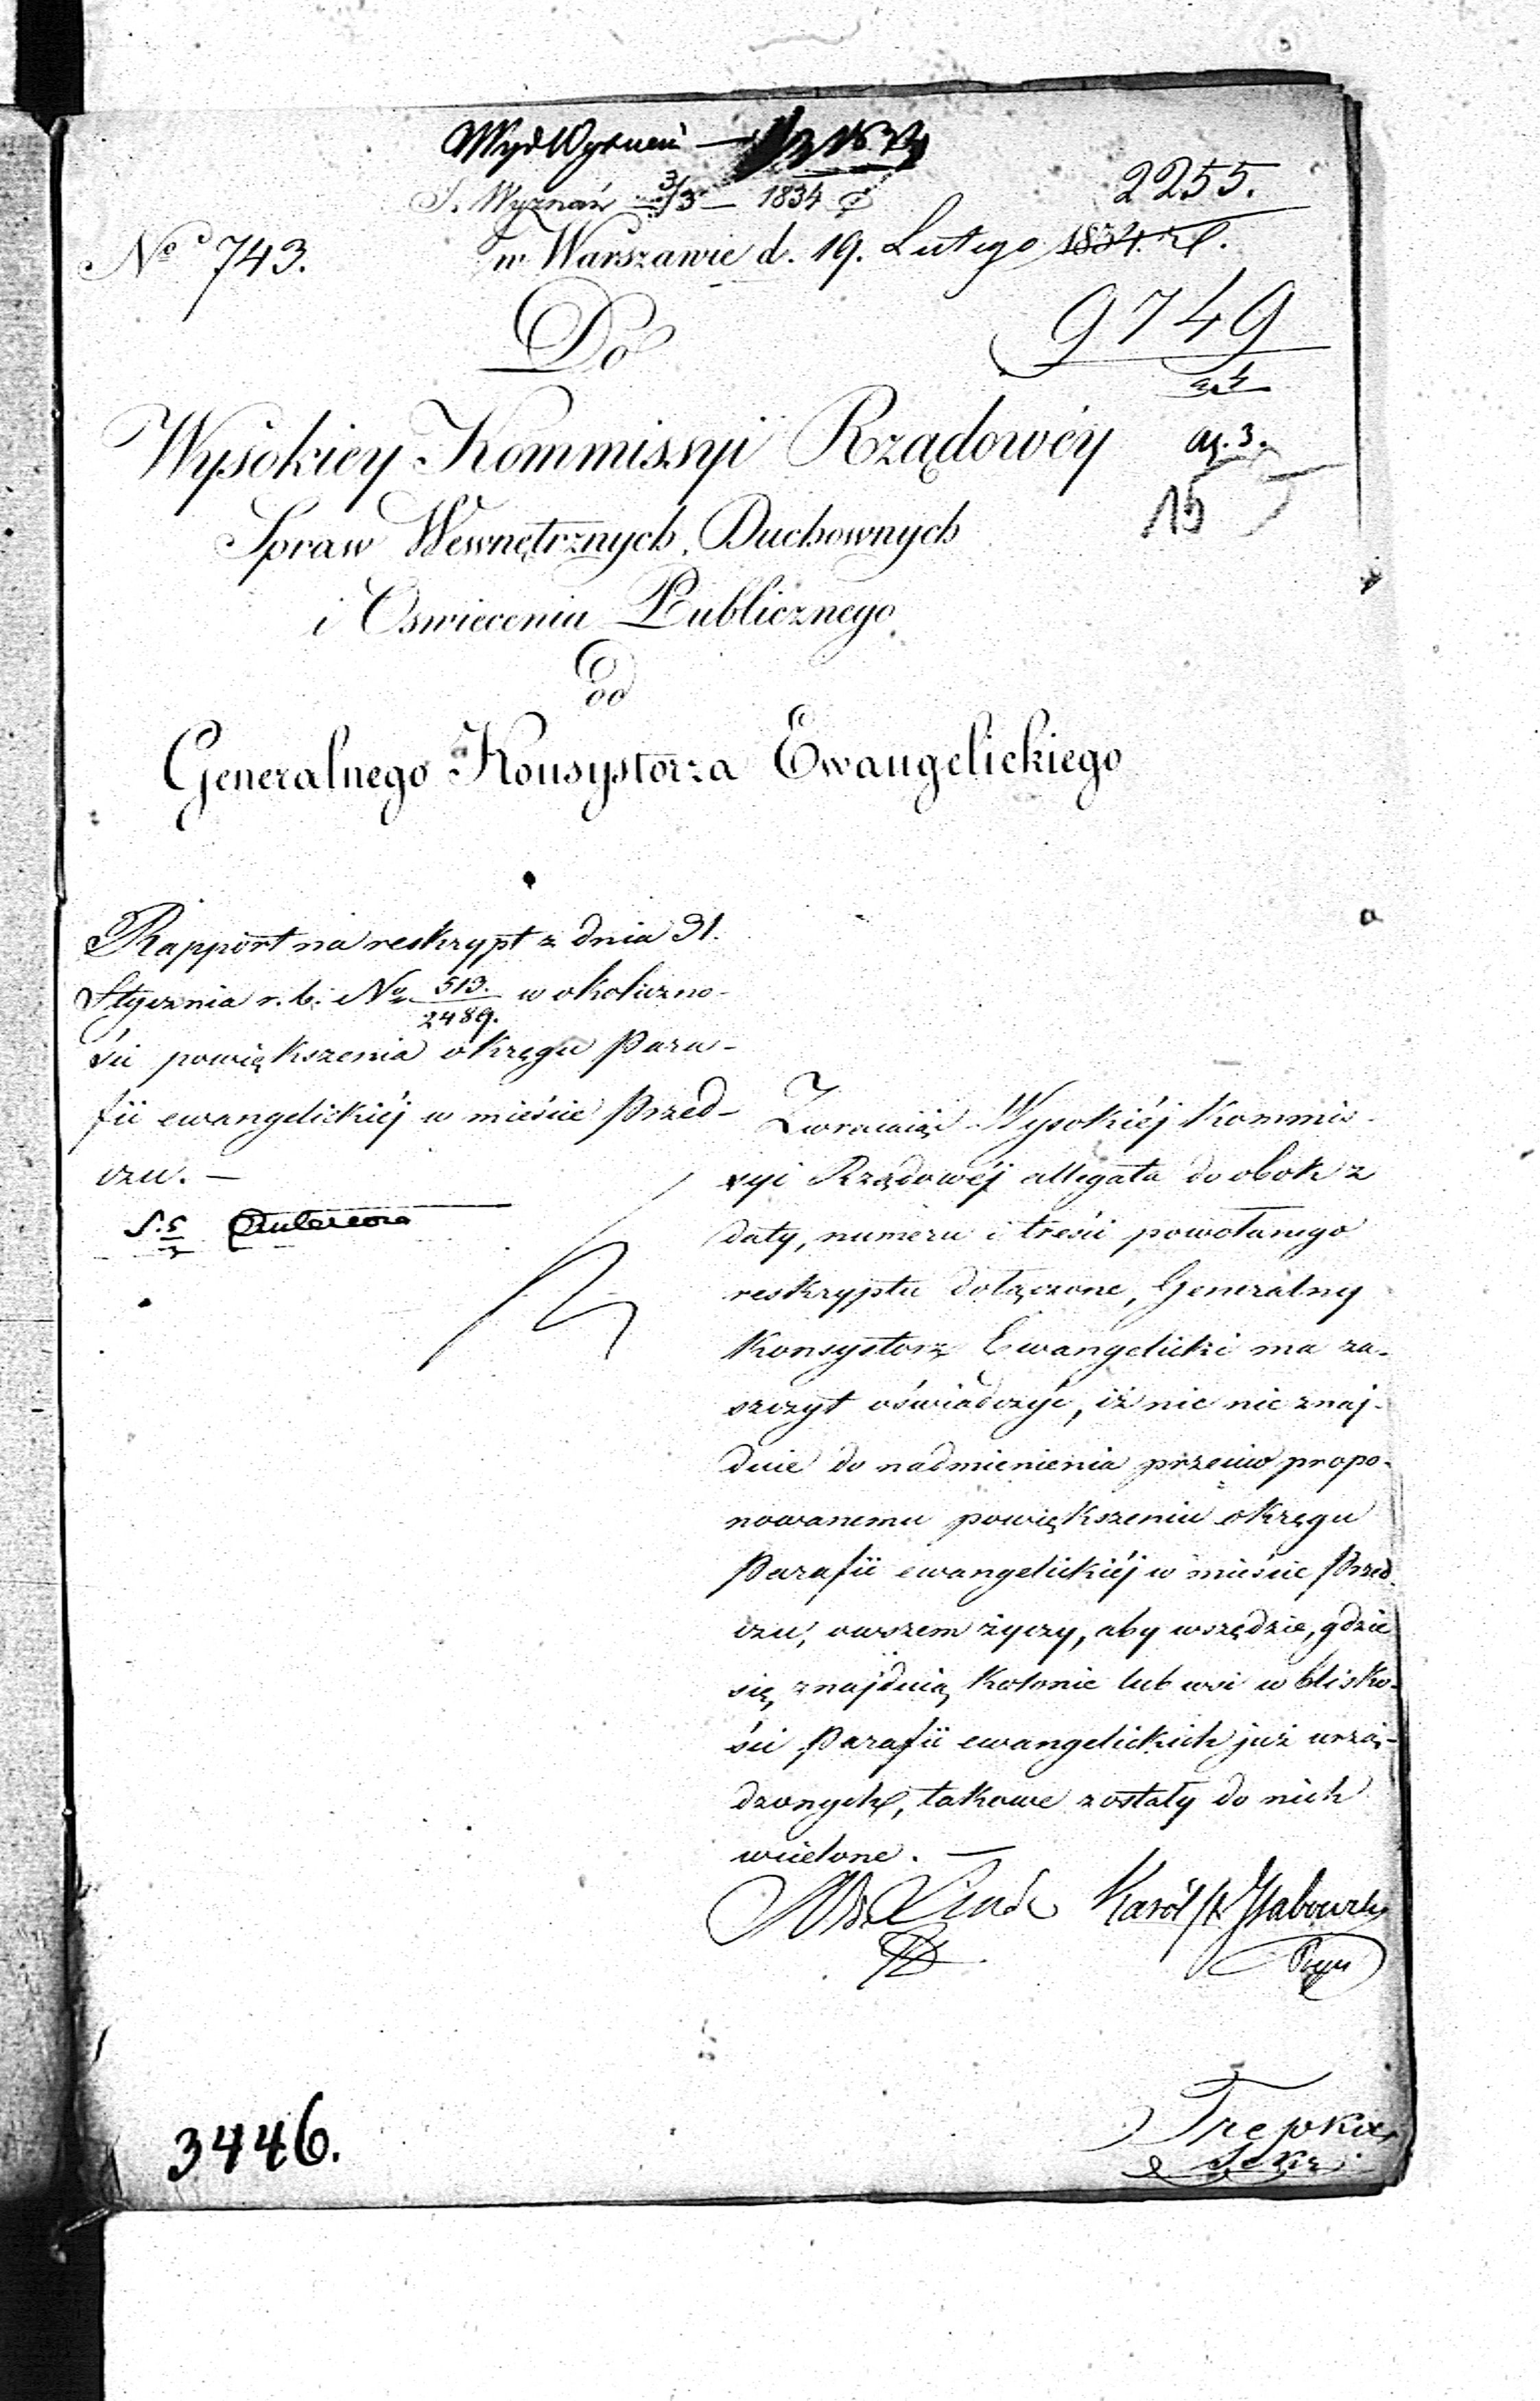 Wyd Wyznań
S. Wyznań 3/3 — 1834
2255.
No 743.
w Warszawie d. 19. Lutego 1834. r.
Do
9749
Wysokiey Kommissyi Rządowéy
15
Spraw Wewnętrznych, Duchownych
i Oswiecenia Publicznego
od
Generalnego Konsystorza Ewangelickiego
Rapport na reskrypt z dnia 31.
Stycznia r. b. No 513./2489. w okoliczno-
ści powiększenia okręgu Para-
fii ewangelickiéj w mieście Przed-
czu. —
Zwracając Wysokiéj Kommis-
syi Rządowéj allegata do obok z
daty, numeru i treści powołanego
reskryptu dołączone, Generalny
Konsystorz Ewangelicki ma za-
szczyt oświadczyć, iż nic nie znaj-
duie do nadmienienia przeciw propo-
nowanemu powiększeniu okręgu
Parafii ewangelickiéj w mieście Przed-
czu, owszem życzy, aby wszędzie, gdzie
się znajduią kolonie lub wsi w blisko-
ści Parafii ewangelickich już urzą-
dzonych, takowe zostały do nich
wcielone. —
Karól
Trepka
3446.